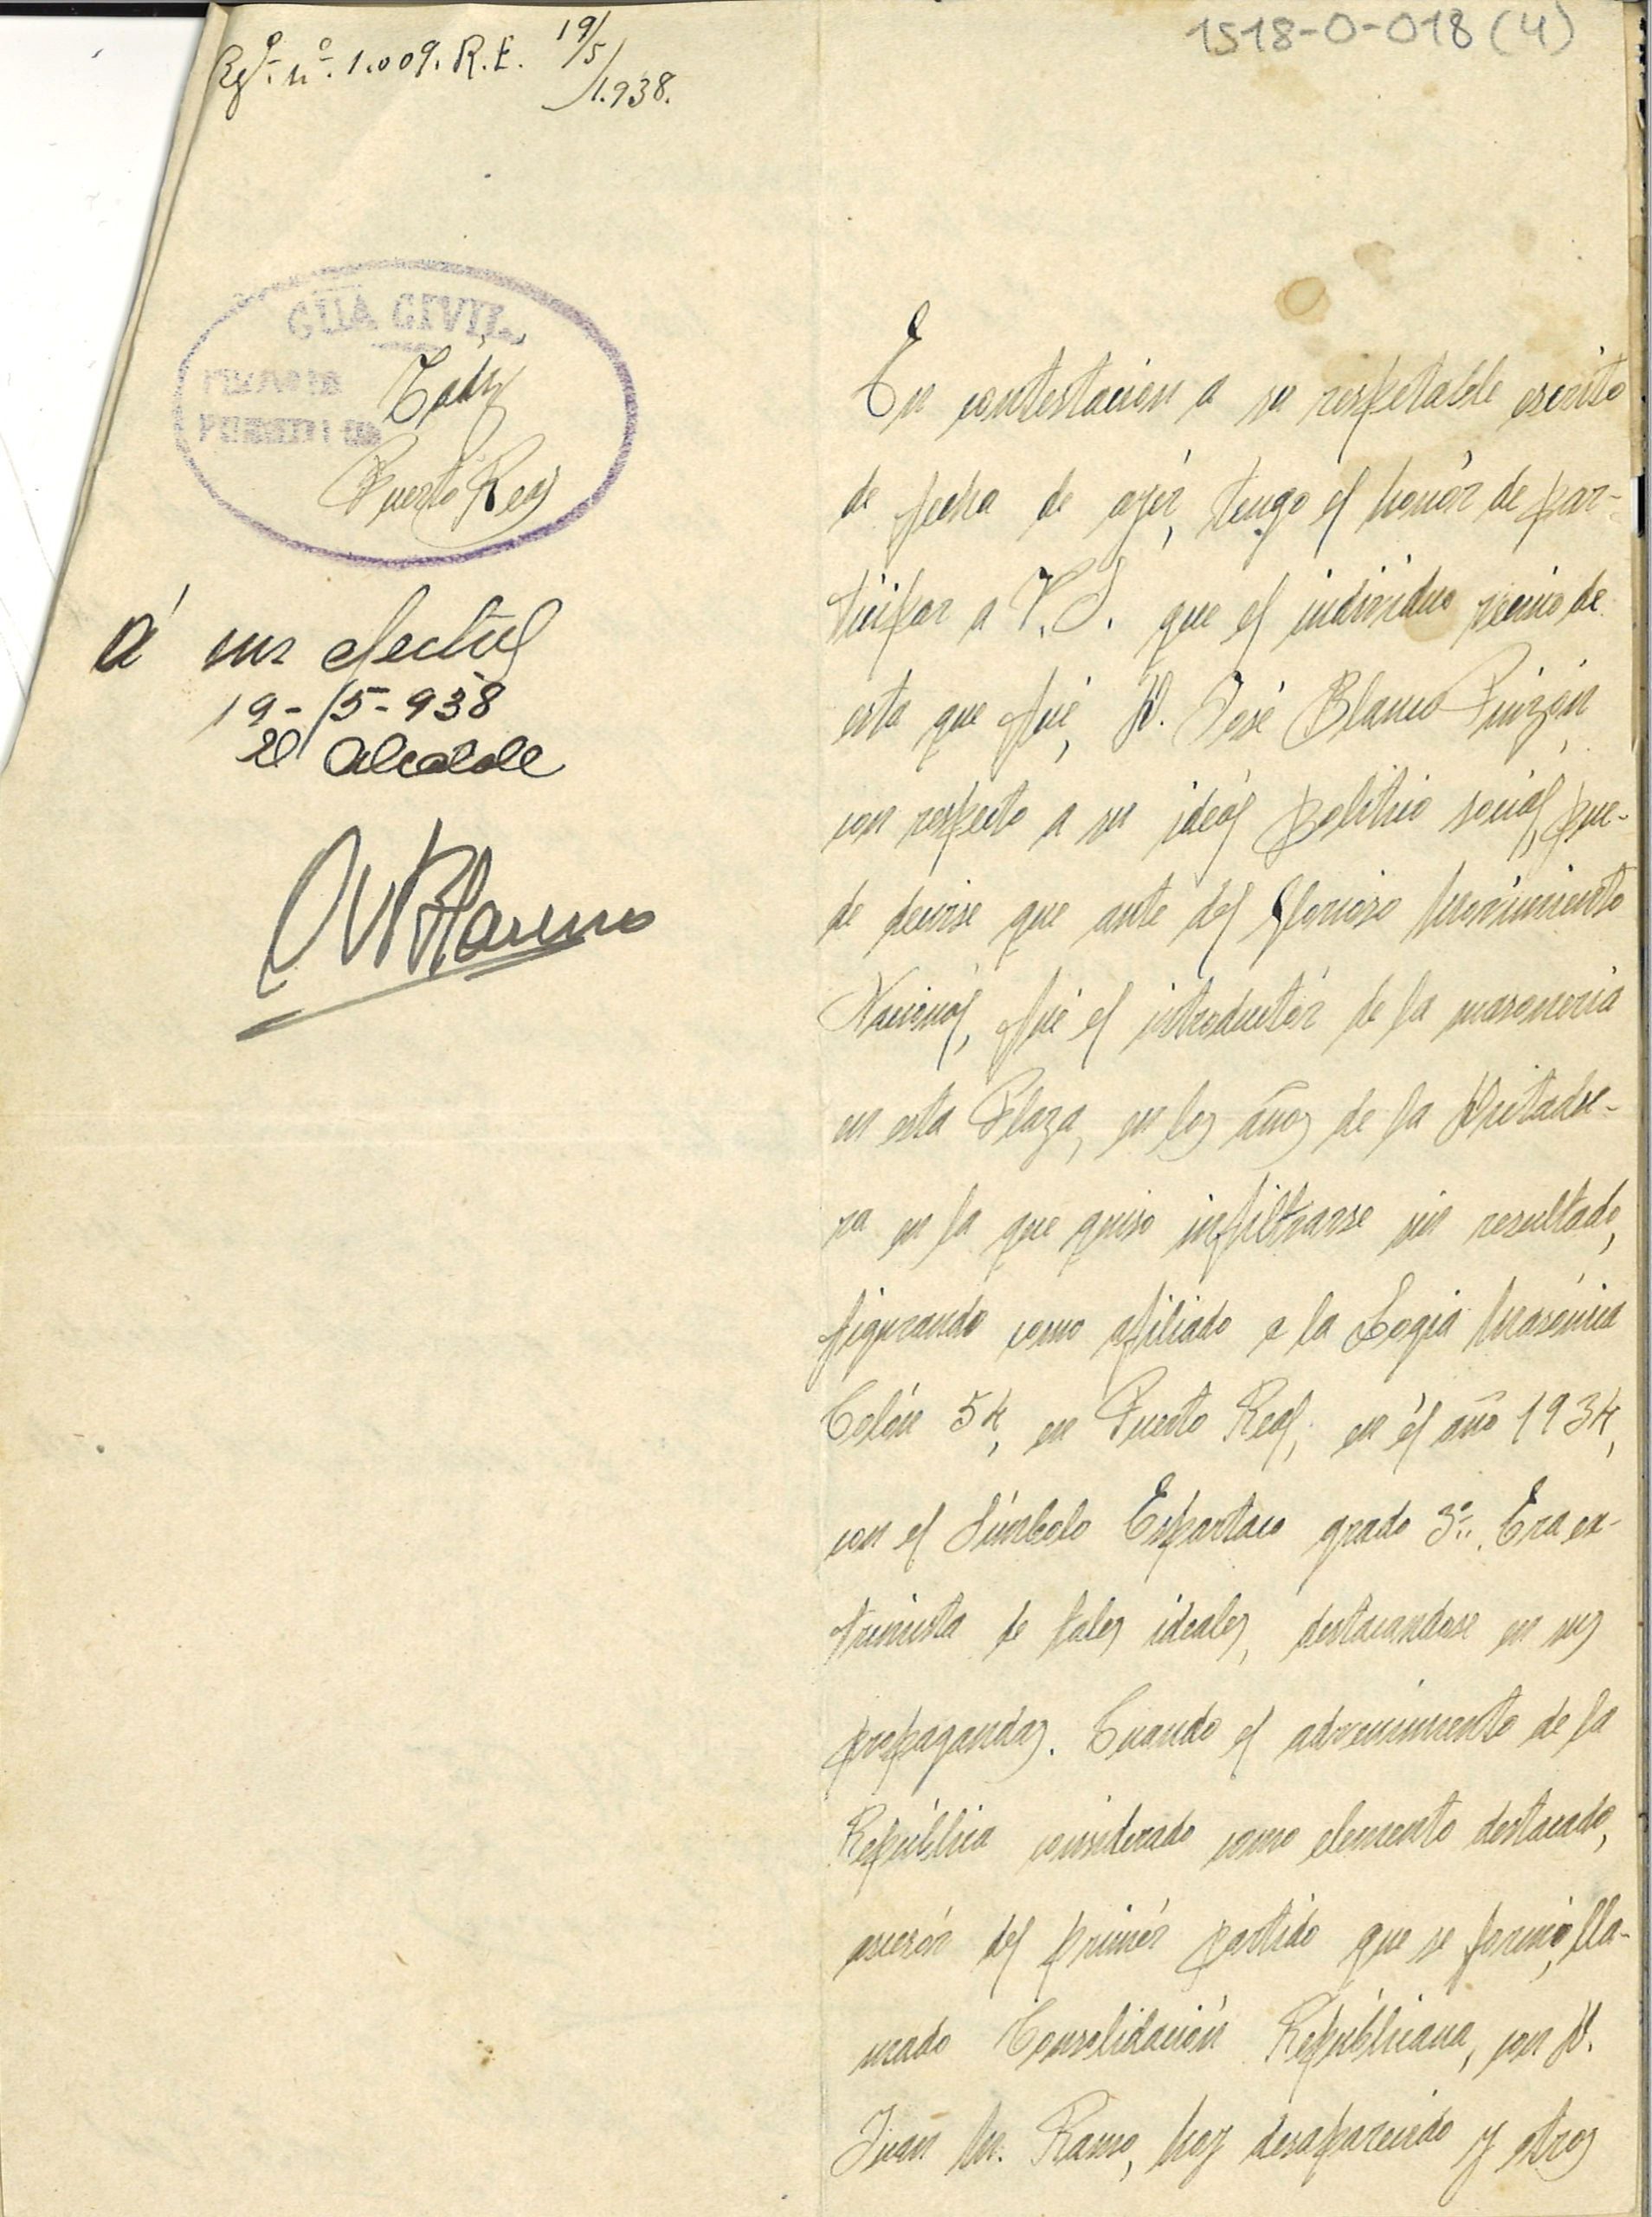 1518-0-018 (4)
Rgº. nº. 1.009. R.E. 19/5/1.938.
GUA CIVIL
Cádiz
Puerto Real
Á sus efectos
19-5-938
El Alcalde
En contestación a su respetable escrito
de fecha de ayér, tengo el honór de par-
ticipar a V.S. que el individuo vecino de
esta que fué, D. José Blanco Pinzón,
con respecto a su ideál politico sociál, pue-
de decirse que ante del Glorioso Movimiento
Nacionál, fué el introductór de la masoneria
en esta Plaza, en los años de la Dictadu-
ra en la que quiso infiltrarse sin resultado,
figurando como afiliado a la Logia Masónica
Colón 54, en Puerto Real, en él año 1934,
con el Símbolo Espartaco grado 3º. Era ex-
tremista de tales ideales, destacandose en sus
propagandas. Cuando el advenimiento de la
República considerado como elemento destacado,
asesór del primér partido que se formó, lla-
mado Consolidación Repúblicana, con D.
Juan M. Ramo, hoy desaparecido y otros